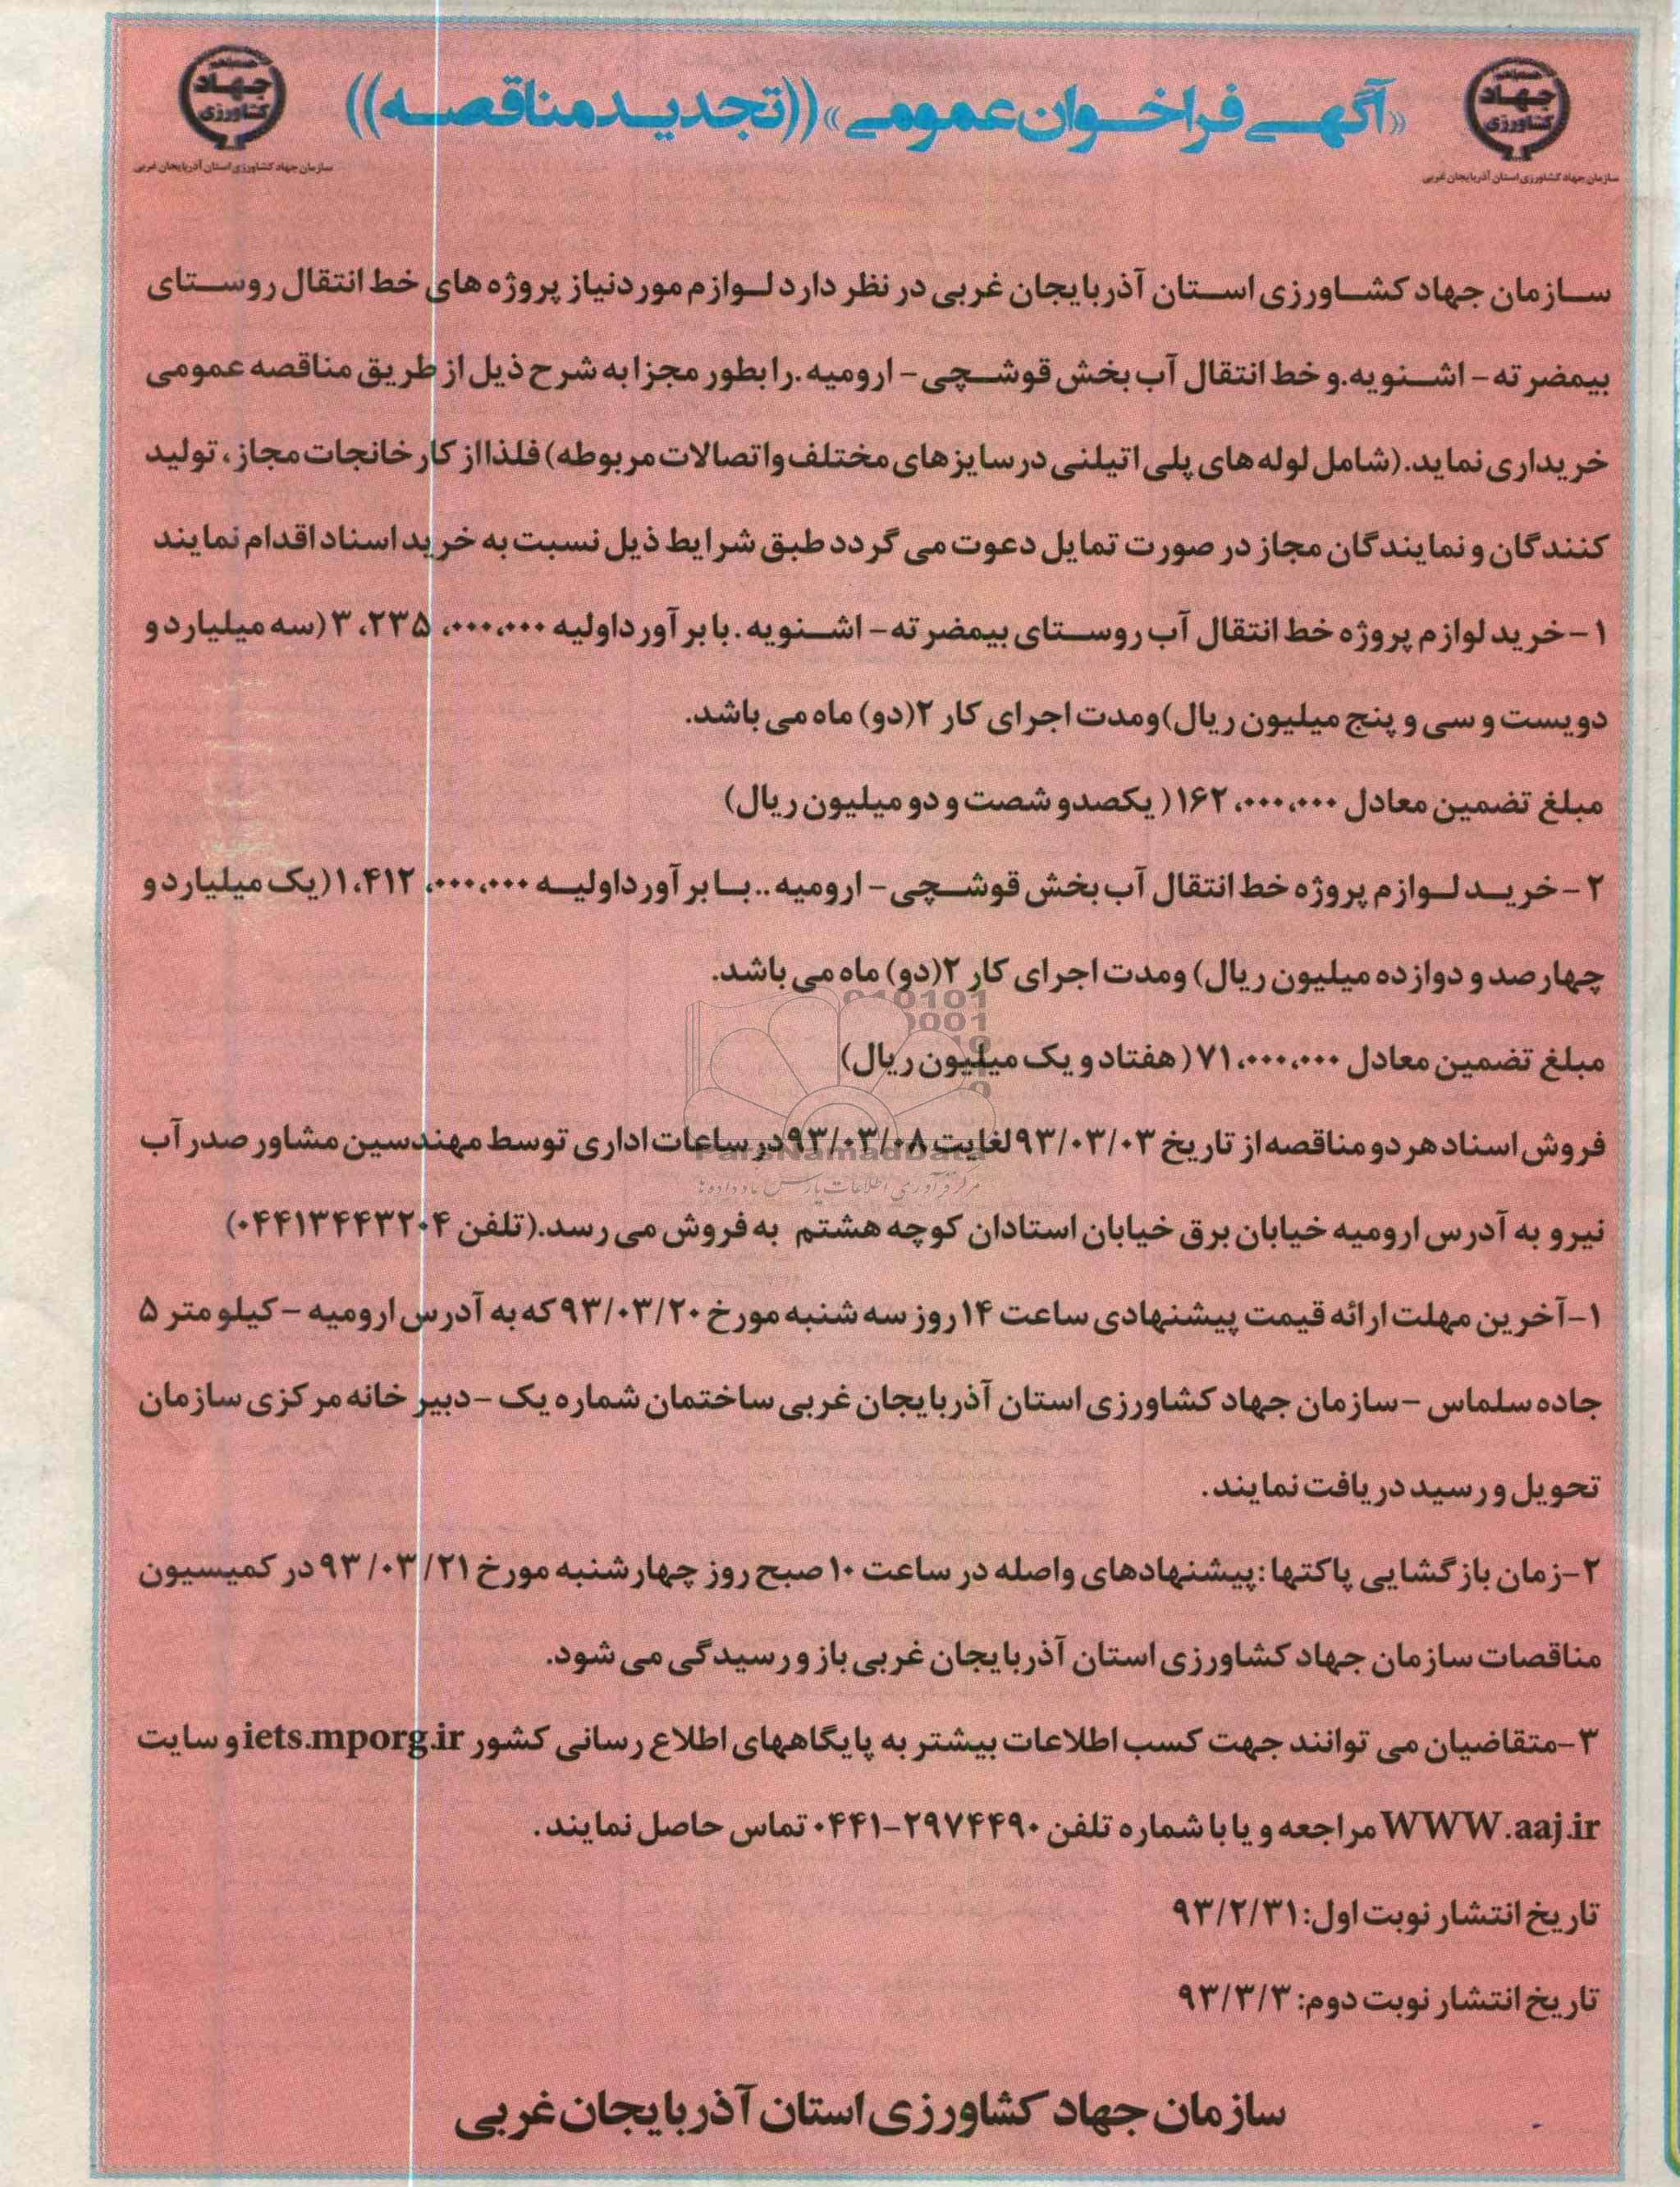 «آگهی فراخوان عمومی» ((تجدید مناقصه))
جهاد
کشاورزی
سازمان جهاد کشاورزی استان آذربایجان غربی
جهاد
کشاورزی
سازمان جهاد کشاورزی استان آذربایجان غربی
سازمان جهاد کشاورزی استان آذربایجان غربی در نظر دارد لوازم مورد نیاز پروژه های خط انتقال روستای
بیمضرته - اشنویه.و خط انتقال آب بخش قوشچی - ارومیه .را بطور مجزا به شرح ذیل از طریق مناقصه عمومی
خریداری نماید.(شامل لوله های پلی اتیلنی در سایزهای مختلف و اتصالات مربوطه) فلذا از کارخانجات مجاز، تولید
کنندگان و نمایندگان مجاز در صورت تمایل دعوت می گردد طبق شرایط ذیل نسبت به خرید اسناد اقدام نمایند
۱- خرید لوازم پروژه خط انتقال آب روستای بیمضرته - اشنویه . با برآورد اولیه ۳،۲۳۵،۰۰۰،۰۰۰ (سه میلیارد و
دویست و سی و پنج میلیون ریال)ومدت اجرای کار ۲(دو) ماه می باشد.
مبلغ تضمین معادل ۱۶۲،۰۰۰،۰۰۰( یکصدو شصت و دو میلیون ریال)
۲- خرید لوازم پروژه خط انتقال آب بخش قوشچی - ارومیه .. با برآورد اولیه ۱،۴۱۲،۰۰۰،۰۰۰(یک میلیارد و
چهارصد و دوازده میلیون ریال) ومدت اجرای کار ۲(دو) ماه می باشد.
مبلغ تضمین معادل ۷۱،۰۰۰،۰۰۰( هفتاد و یک میلیون ریال)
فروش اسناد هر دو مناقصه از تاریخ ۹۳/۰۳/۰۳ لغایت ۹۳/۰۳/۰۸ در ساعات اداری توسط مهندسین مشاور صدر آب
ParsNamadData
مرکز فرآوری اطلاعات پارس نماد داده ها
نیرو به آدرس ارومیه خیابان برق خیابان استادان کوچه هشتم به فروش می رسد.(تلفن ۰۴۴۱۳۴۴۳۲۰۴)
۱-آخرین مهلت ارائه قیمت پیشنهادی ساعت ۱۴ روز سه شنبه مورخ ۹۳/۰۳/۲۰ که به آدرس ارومیه - کیلومتر ۵
جاده سلماس - سازمان جهاد کشاورزی استان آذربایجان غربی ساختمان شماره یک - دبیر خانه مرکزی سازمان
تحویل و رسید دریافت نمایند.
۲-زمان بازگشایی پاکتها : پیشنهادهای واصله در ساعت ۱۰ صبح روز چهارشنبه مورخ ۹۳/۰۳/۲۱ در کمیسیون
مناقصات سازمان جهاد کشاورزی استان آذربایجان غربی باز و رسیدگی می شود.
۳-متقاضیان می توانند جهت کسب اطلاعات بیشتر به پایگاههای اطلاع رسانی کشور iets.mporg.ir و سایت
WWW.aaj.ir مراجعه و یا با شماره تلفن ۲۹۷۴۴۹۰-۰۴۴۱ تماس حاصل نمایند.
تاریخ انتشار نوبت اول: ۹۳/۲/۳۱
تاریخ انتشار نوبت دوم: ۹۳/۳/۳
سازمان جهاد کشاورزی استان آذربایجان غربی